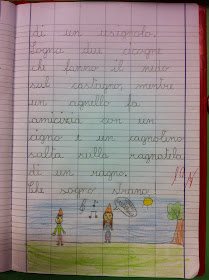 di un usignolo.
Sogna due cicogne
che fanno il nido
sul castagno, mentre
un agnello fa
amicizia con un
cigno e un cagnolino
salta sulla ragnatela
di un ragno.
Che sogno strano